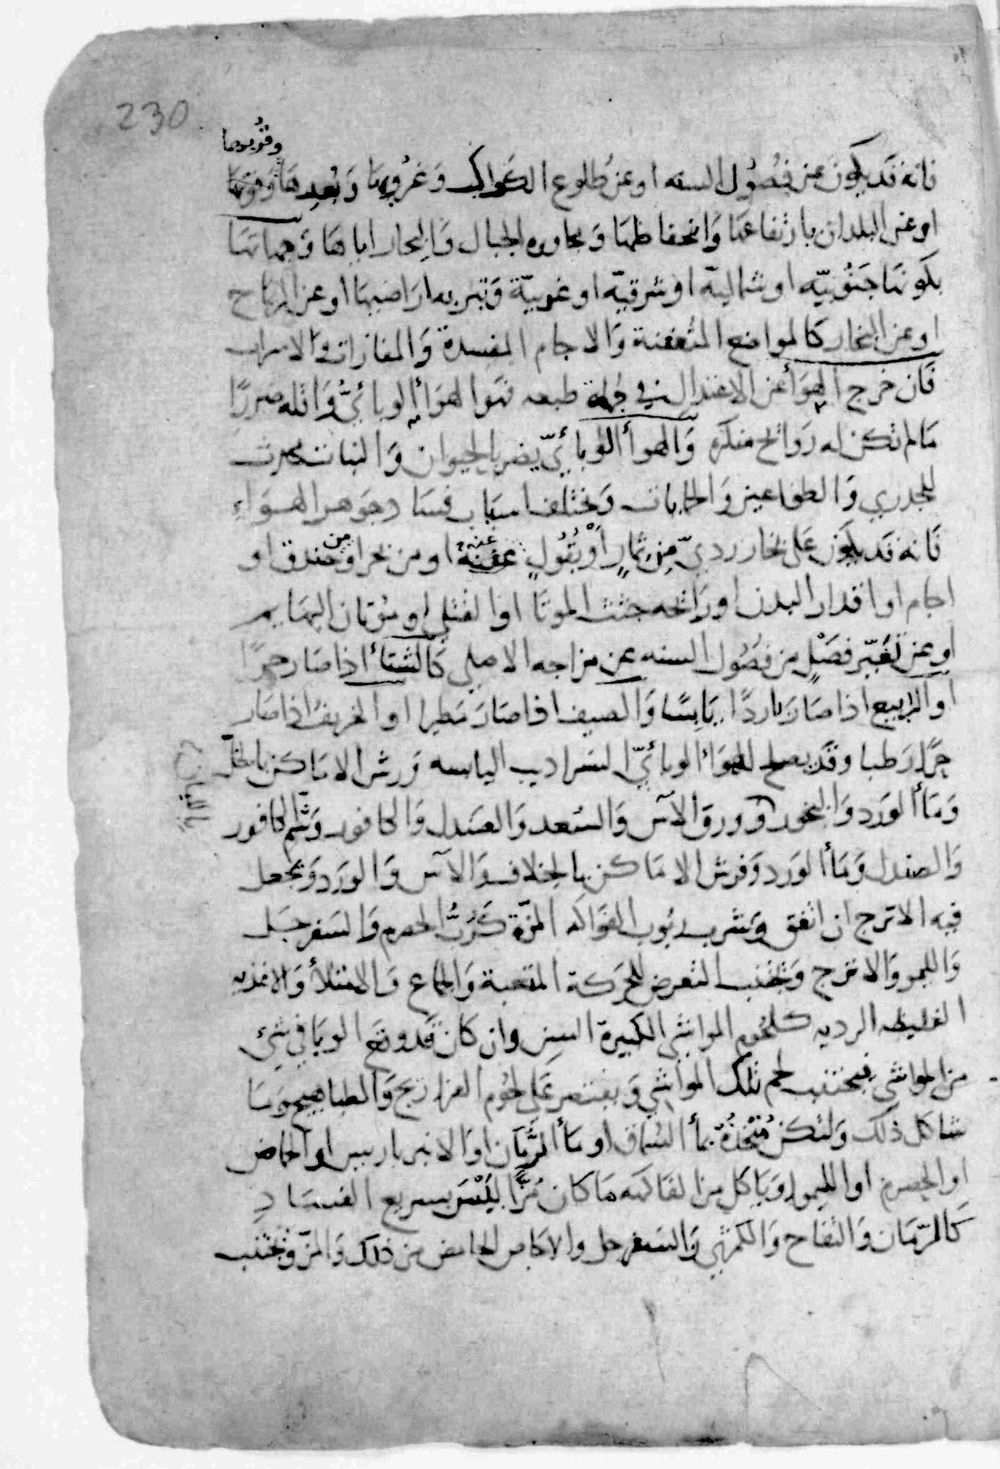 230
وقربها
فانه قد يكون عن فصول السنه او عن طلوع الكواكب وغروبها وبعدها وقوتها
او عن البلدان بارتفاعها وانخفاظها ومجاوره الجبال والبحار اياها وجهاتها
بكونها جنوبيّه او شمالية او شرقيه او غربيّة وتربه اراضيها او عن الرياح
او عن البخار كالمواضع المتعفنة والاجام المفسدة والمغارات والاسراب
فان خرج الهوا عن الاعتدال في جملة طبعه فهوا لهوا الوبائيّ واقله ضررا
مالم تكن له روائح منكره والهوا الوبائيّ يضر بالحيوان والنبات
للجدري والطواعين والحميات وتختلف اسباب فساد جوهر الهواء
فانه قد يكون على بخار رديّ من ثمار او بقول عفنة او من بحر او من خندق او
اجام او اقدار البدن او رائحه جثث الموتا او القتلى او موتان البهايم
او عن تغيّر فصل من فصول السنه عن مزاجه الاصلي كالشتا اذا صار حرا
او الربيع اذا صار باردا يابسًا والصيف اذا صار مطيرا او الخريف اذا صار
حرا رطبا وقد يصلح للهوا الوبائيّ السراديب اليابسه ورش الاماكن بالخلّ
وما الورد والبخور وورق الآس والسعد والصندل والكافور وشم الكافور
والصندل وما الورد وفرش الاماكن بالخلاف والآس والورد ويجعل
فيه الاترج ان اتفق وشرب ربوب الفواكه المزّة كربّ الحصرم والسفرجل
والليمو والاترج وتجنب التعرض للحركة المتعبة والجماع والامتلأ والاغذيه
الغليظه الرديه كلحوم المواشي الكبيرة السن وان كان قد وقع الوبا في شيء
من المواشي فيجتنب لحم تلك المواشي ويقتصر على لحوم الفراريج والطياهيج وما
شاكل ذلك ولتكن متخذة بما السماق او ما الرمان او الانبرباريس او الحماض
او الحصرم او الليمو وياكل من الفاكهه ما كان مزّا ليس بسريع الفساد
كالرمان والتفاح والكمثري والسفرجل والاجاص الحامض من ذلك والمزّ وتجتنب